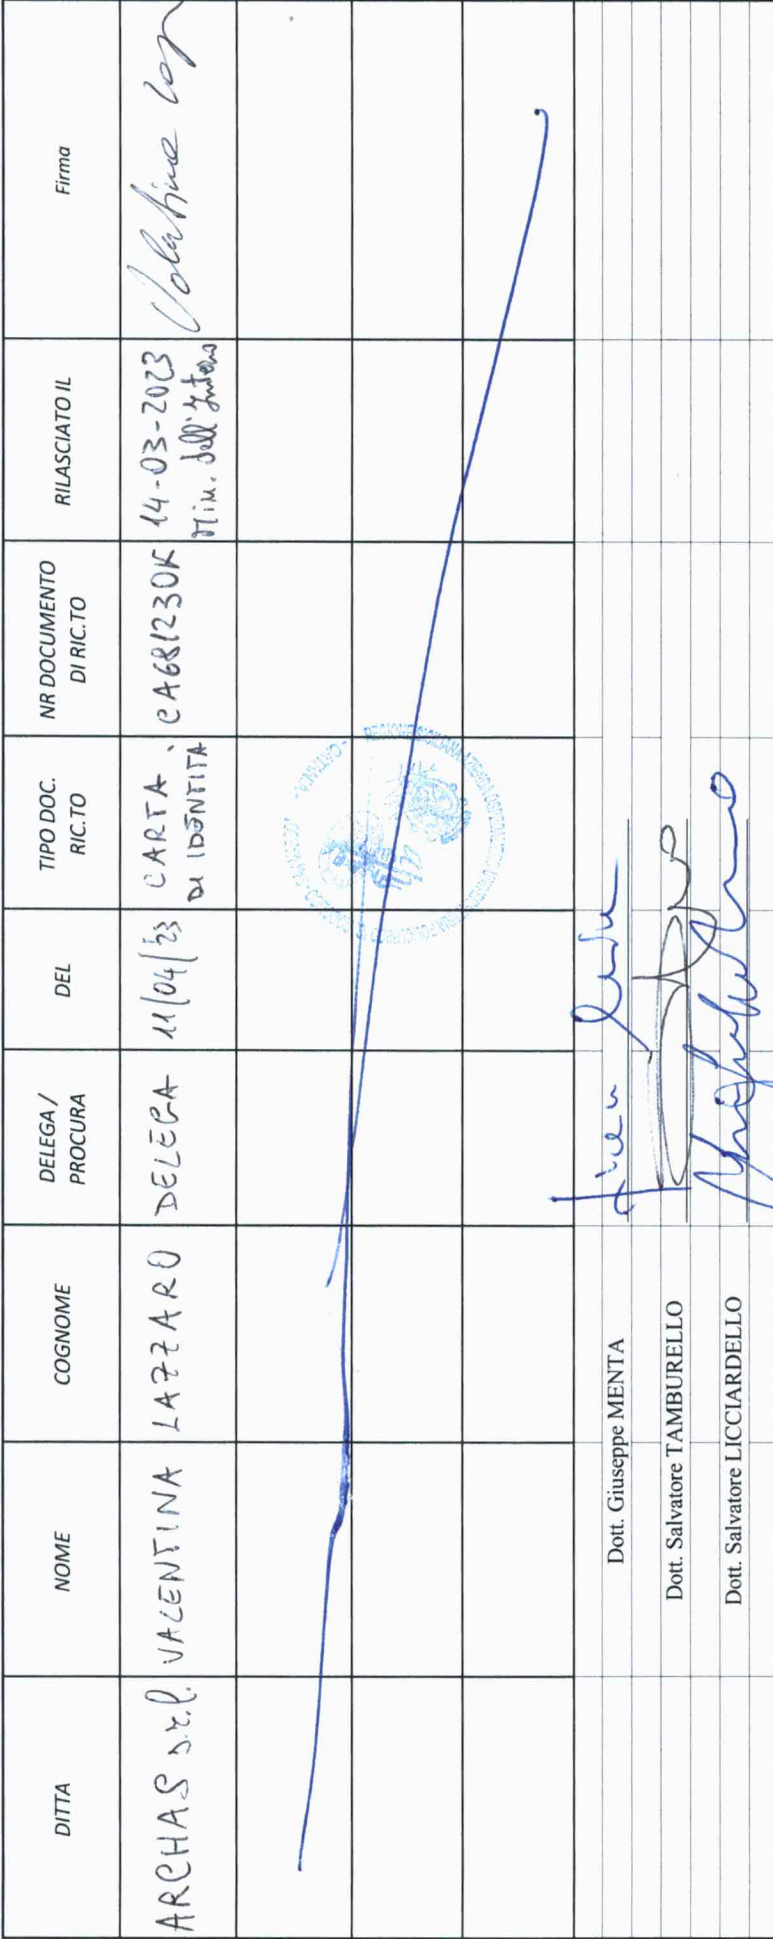 DITTA
NOME
COGNOME
DELEGA /
PROCURA
DEL
TIPO DOC.
RIC.TO
NR DOCUMENTO
DI RIC.TO
RILASCIATO IL
Firma
ARCHAS s.r.l.
VALENTINA
LAZZARO
DELEGA
11/04/23
CARTA
DI IDENTITA
CA68123OK
14-03-2023
Min. dell'Interno
Valentina
Dott. Giuseppe MENTA
Dott. Salvatore TAMBURELLO
Dott. Salvatore LICCIARDELLO